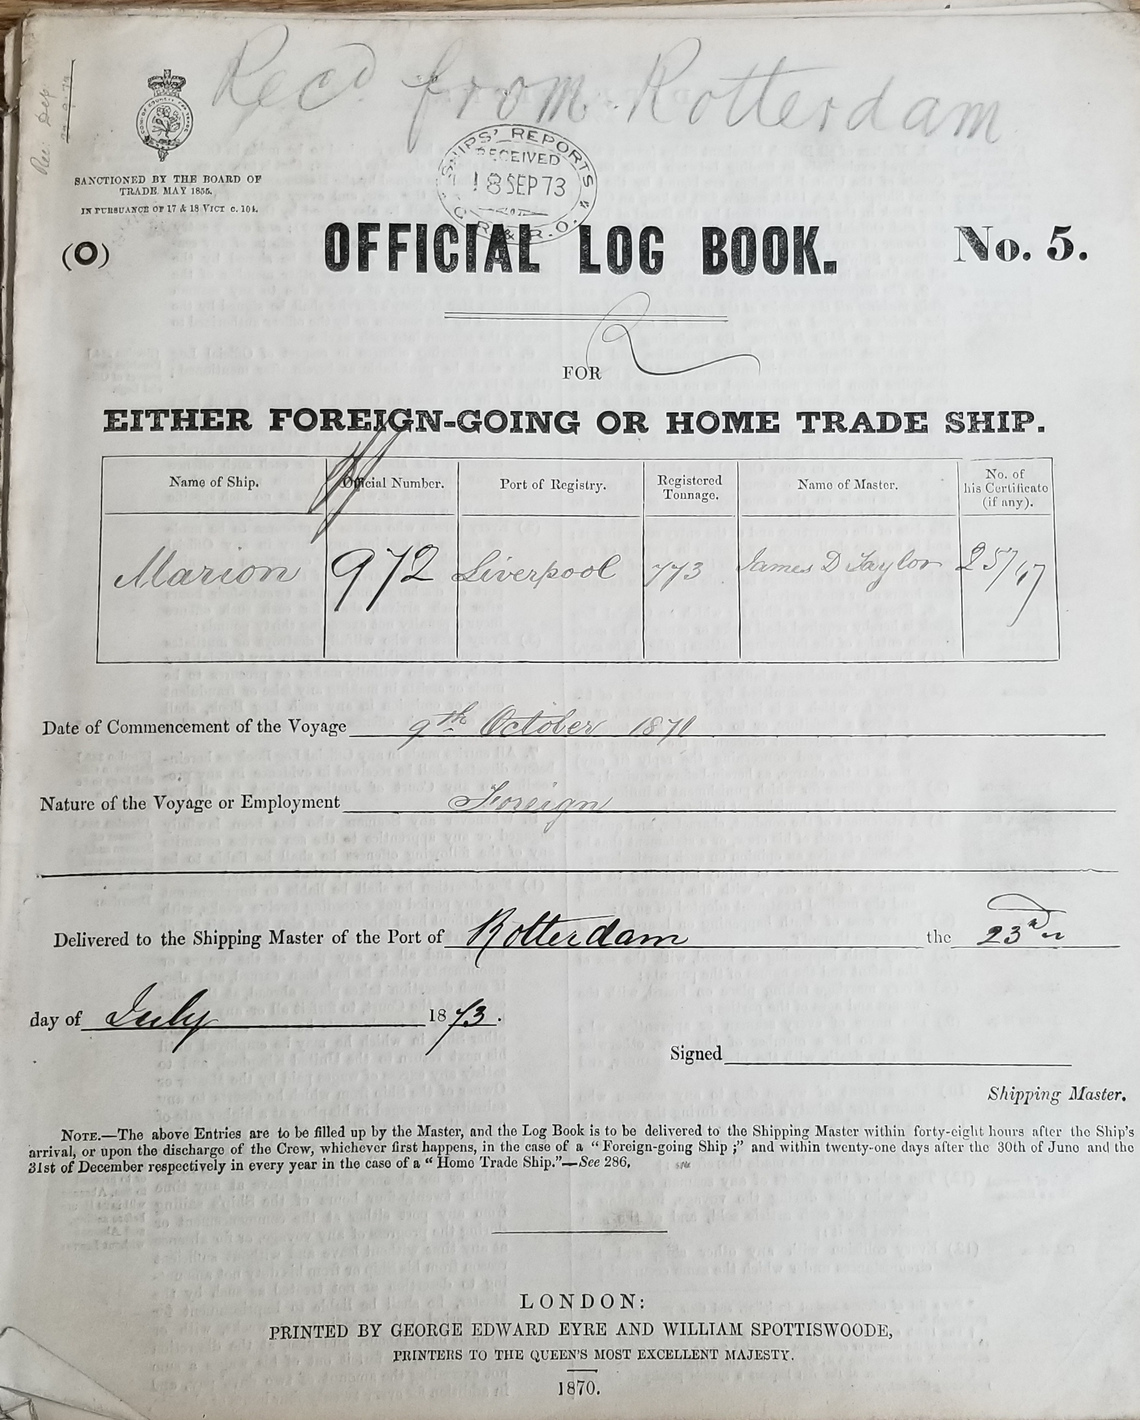 Recd from Rotterdam
SANCTIONED BY THE BOARD OF
TRADE MAY 1855.
IN PURSUANCE OF 17 & 18 VICT c. 104.
SHIPS' REPORTS
RECEIVED
18 SEP 73
G. R. & R. O.
(O)
OFFICIAL LOG BOOK.
No. 5.
R
FOR
EITHER FOREIGN-GOING OR HOME TRADE SHIP.
Name of Ship. Official Number. Port of Registry. Registered Tonnage. Name of Master. No. of his Certificate (if any).
Marion 972 Liverpool 773 James D Taylor
Date of Commencement of the Voyage 9th October 1871
Nature of the Voyage or Employment Foreign
Delivered to the Shipping Master of the Port of Rotterdam the 23rd
day of July 1873.
Signed
Shipping Master.
NOTE.—The above Entries are to be filled up by the Master, and the Log Book is to be delivered to the Shipping Master within forty-eight hours after the Ship's
arrival, or upon the discharge of the Crew, whichever first happens, in the case of a "Foreign-going Ship;" and within twenty-one days after the 30th of June and the
31st of December respectively in every year in the case of a "Home Trade Ship."—See 286.
LONDON:
PRINTED BY GEORGE EDWARD EYRE AND WILLIAM SPOTTISWOODE,
PRINTERS TO THE QUEEN'S MOST EXCELLENT MAJESTY.
1870.